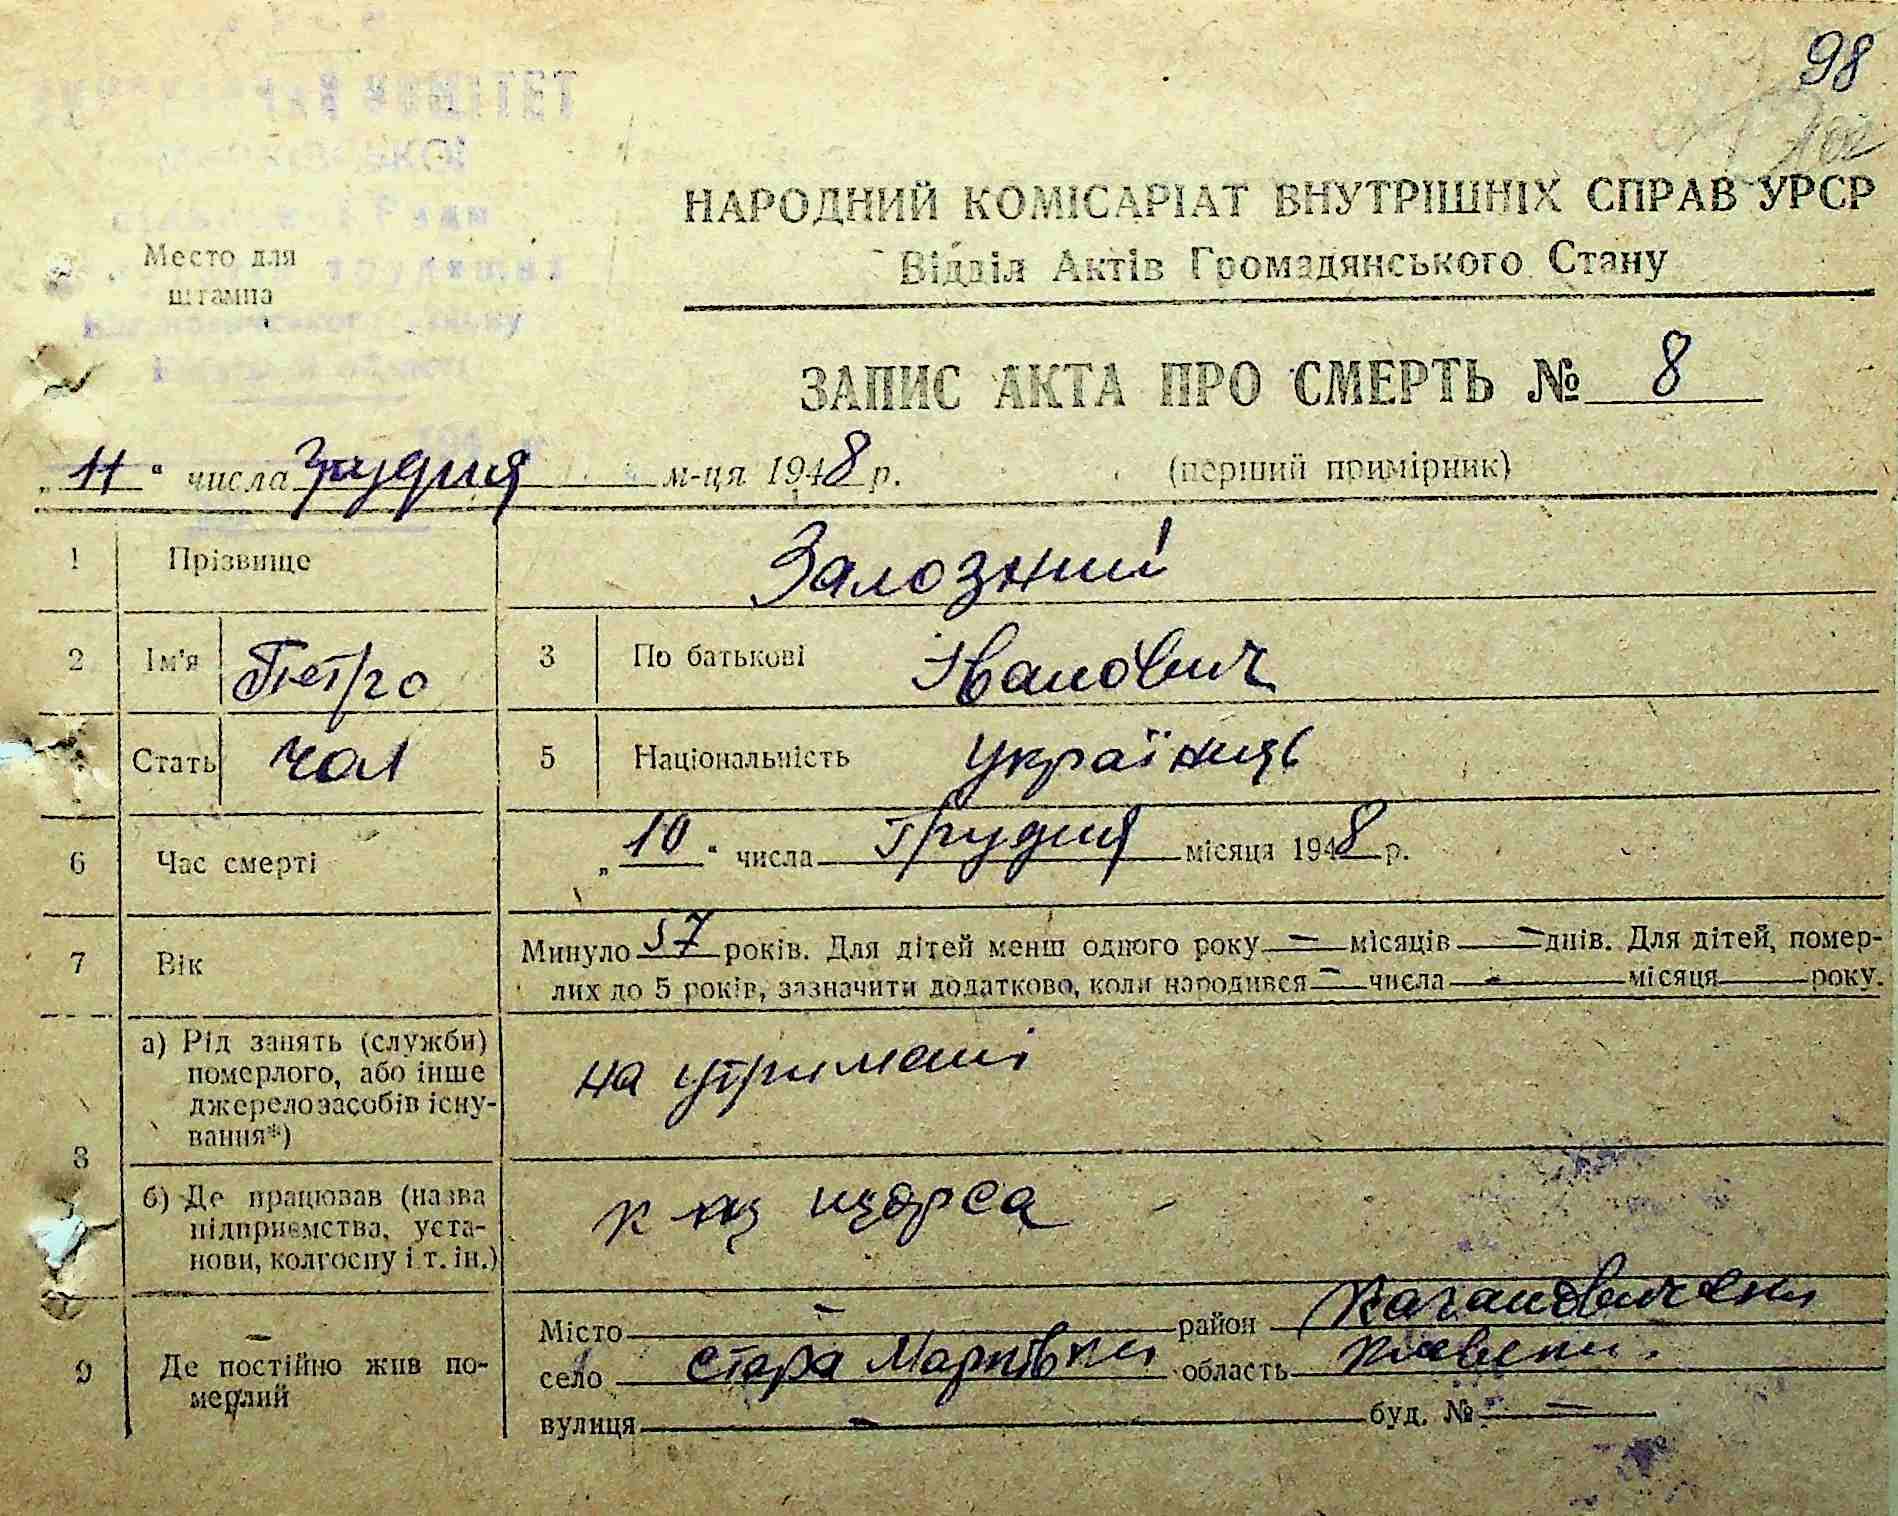 98
НАРОДНИЙ КОМІСАРІАТ ВНУТРІШНІХ СПРАВ УРСР
Відділ Актів Громадянського Стану
Место для
штампа
ЗАПИС АКТА ПРО СМЕРТЬ № 8
„11“ числа Грудня м-ця 1948 р. (перший примірник)
1 Прізвище Залозний
2 Ім'я Петро 3 По батькові Іванович
Стать чол 5 Національність українець
6 Час смерті „10“ числа Грудня місяця 1948 р.
7 Вік Минуло 57 років. Для дітей менш одного року — місяців — днів. Для дітей, помер-
лих до 5 років, зазначити додатково, коли народився — числа — місяця року.
8 а) Рід занять (служби)
померлого, або інше
джерело засобів існу-
вання*)
на утримані
б) Де працював (назва
підприємства, уста-
нови, колгоспу і т. ін.)
щорса
9 Де постійно жив по-
мерлий
Місто — район Кагановически
село Стара Марківка область Киевски.
вулиця — буд. № —